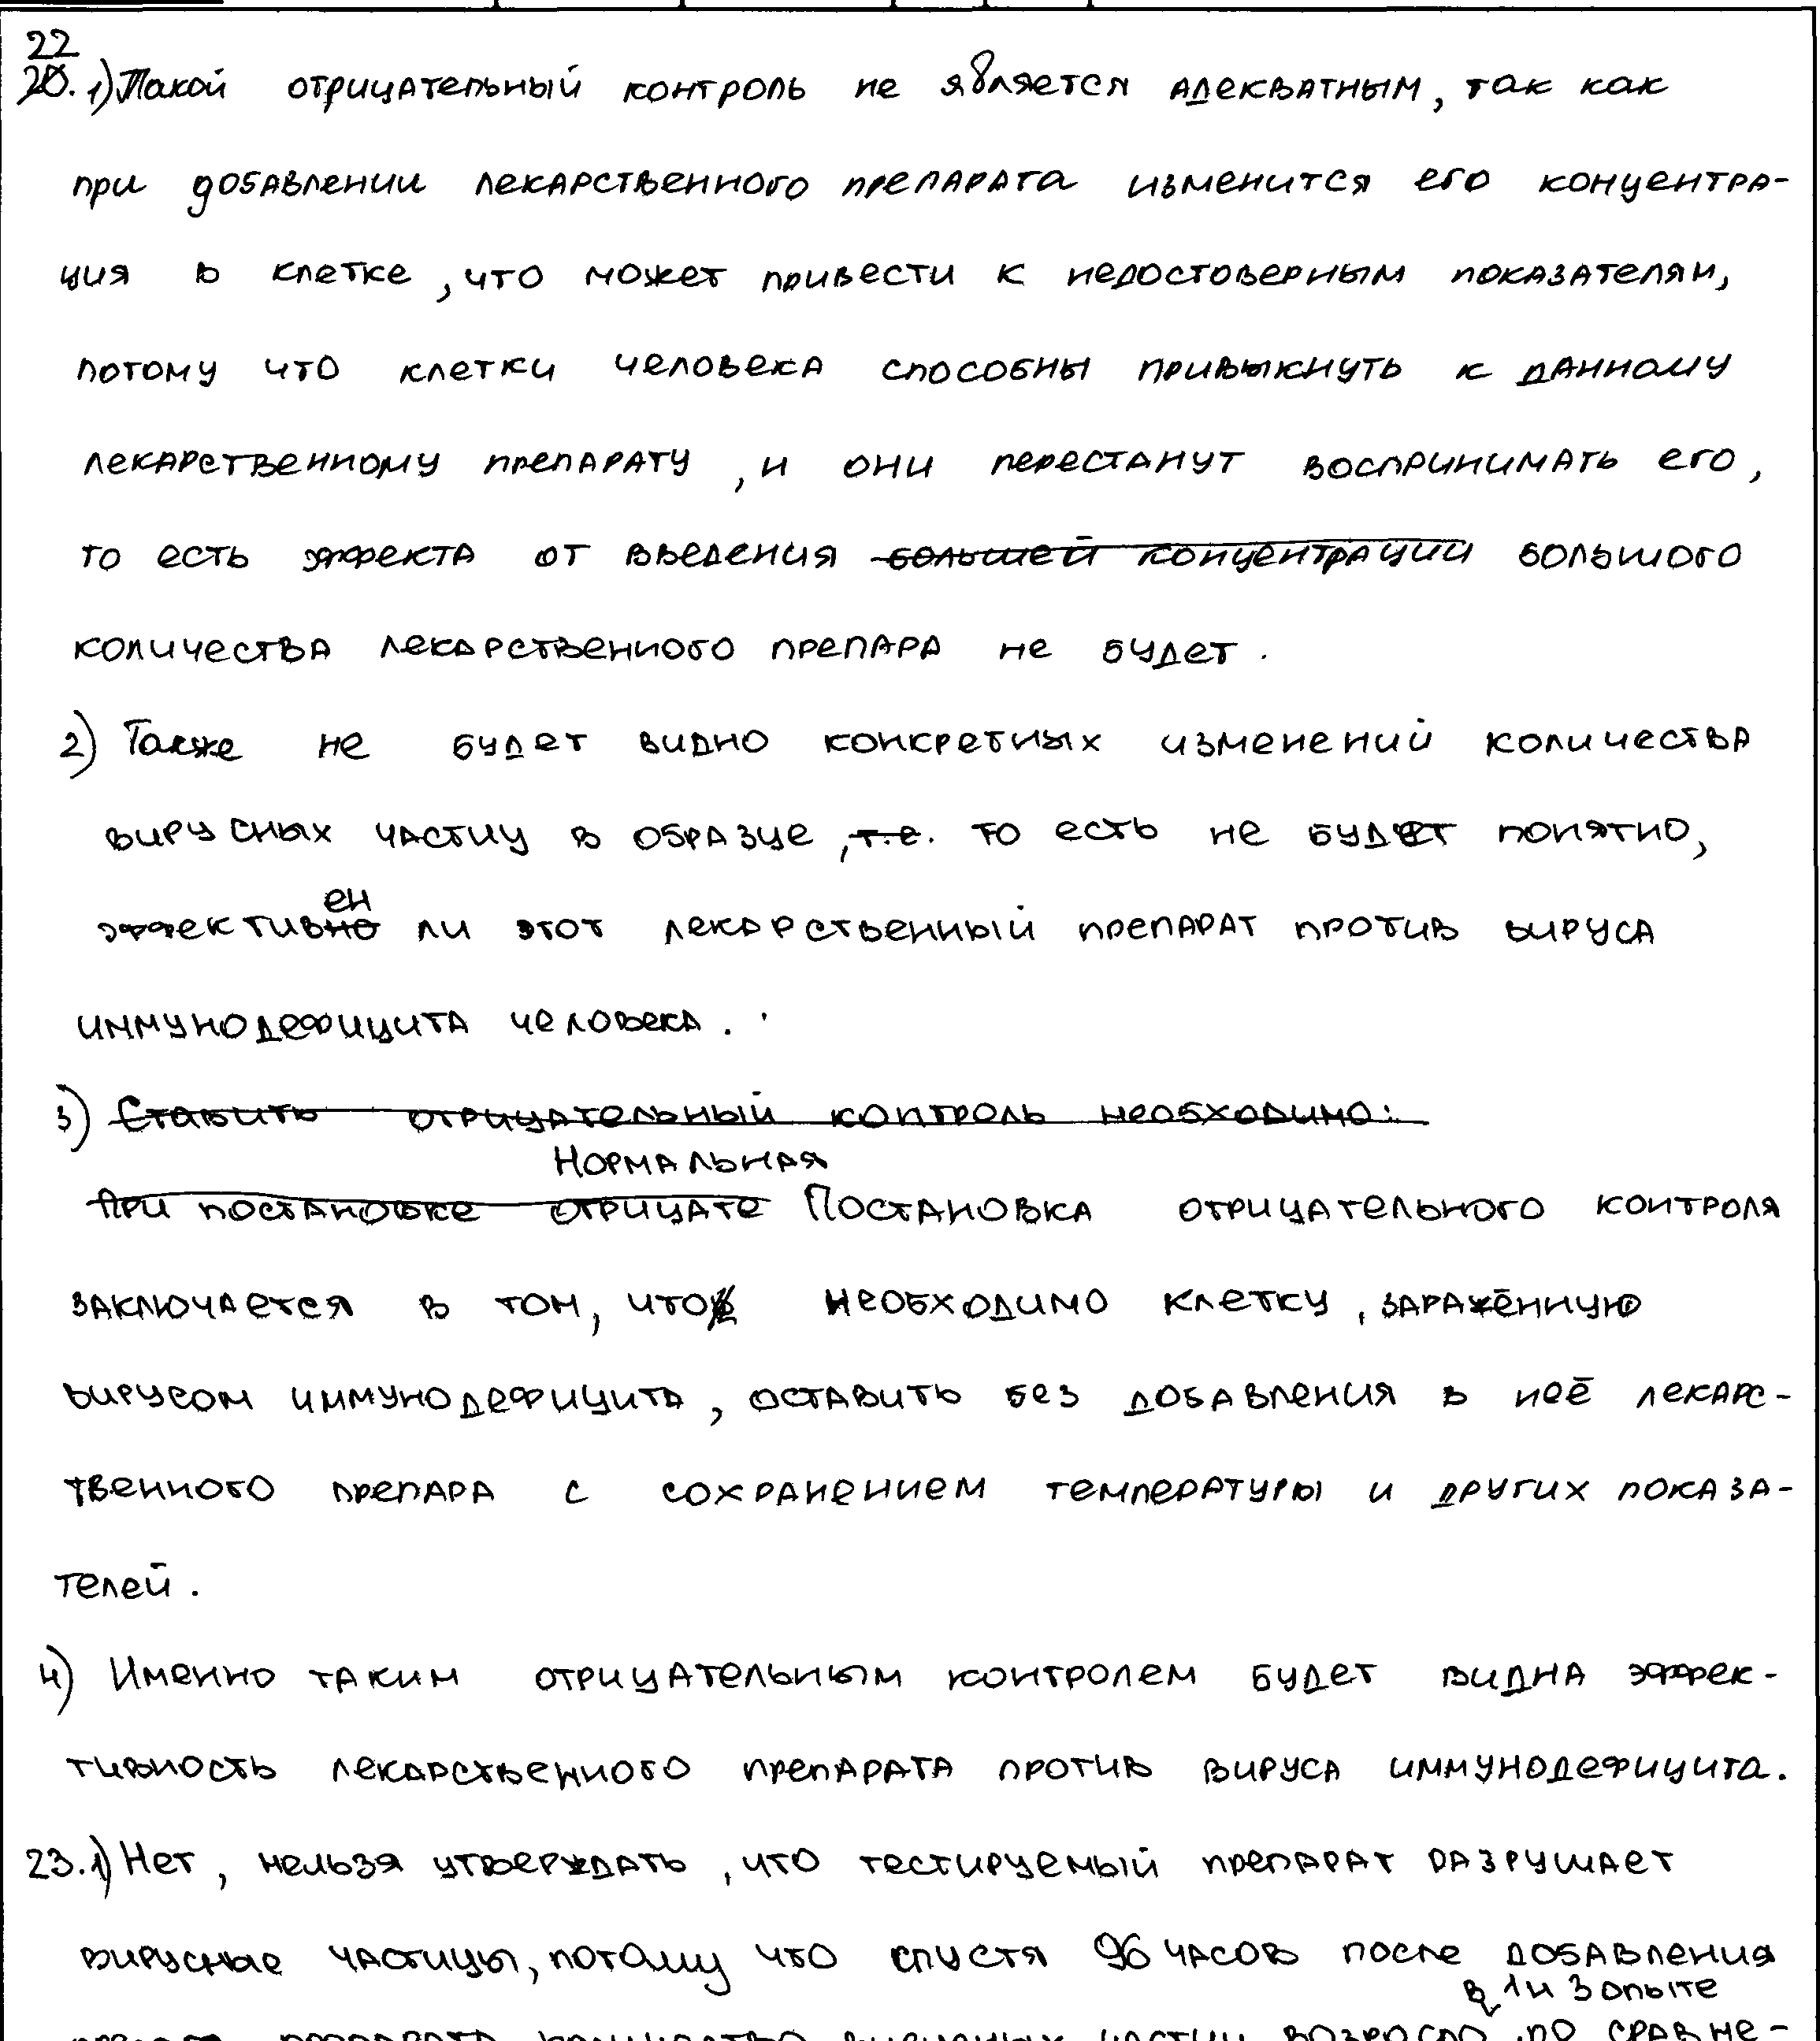 22
20. 1) Такой отрицательный контроль не является адекватным, так как
при добавлении лекарственного препарата изменится его концентра-
ция в клетке, что может привести к недостоверным показателям,
потому что клетки человека способны привыкнуть к данному
лекарственному препарату, и они перестанут воспринимать его,
то есть эффекта от введения большей концентрации большого
количества лекарственного препара не будет.
2) Также не будет видно конкретных изменений количества
вирусных частиц в образце, т.е. то есть не будет понятно,
ен
эффективно ли этот лекарственный препарат против вируса
иммунодефицита человека.
3) Ставить отрицательный контроль необходимо:
Нормальная
При постановке отрицате Постановка отрицательного контроля
заключается в том, что необходимо клетку, заражённую
вирусом иммунодефицита, оставить без добавления в неё лекарс-
твенного препара с сохранением температуры и других показа-
телей.
4) Именно таким отрицательным контролем будет видна эффек-
тивность лекарственного препарата против вируса иммунодефицита.
23. 1) Нет, нельзя утверждать, что тестируемый препарат разрушает
вирусные частицы, потому что спустя 96 часов после добавления
в 1 и 3 опыте
препарата количество вирусных частиц возросло по сравне-